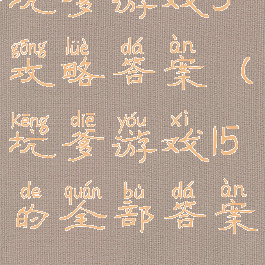 坑爹游戏5
gōng lüè dá àn
攻略答案(
kēng diē yóu xì
坑爹游戏15
de quán bù dá àn
的全部答案